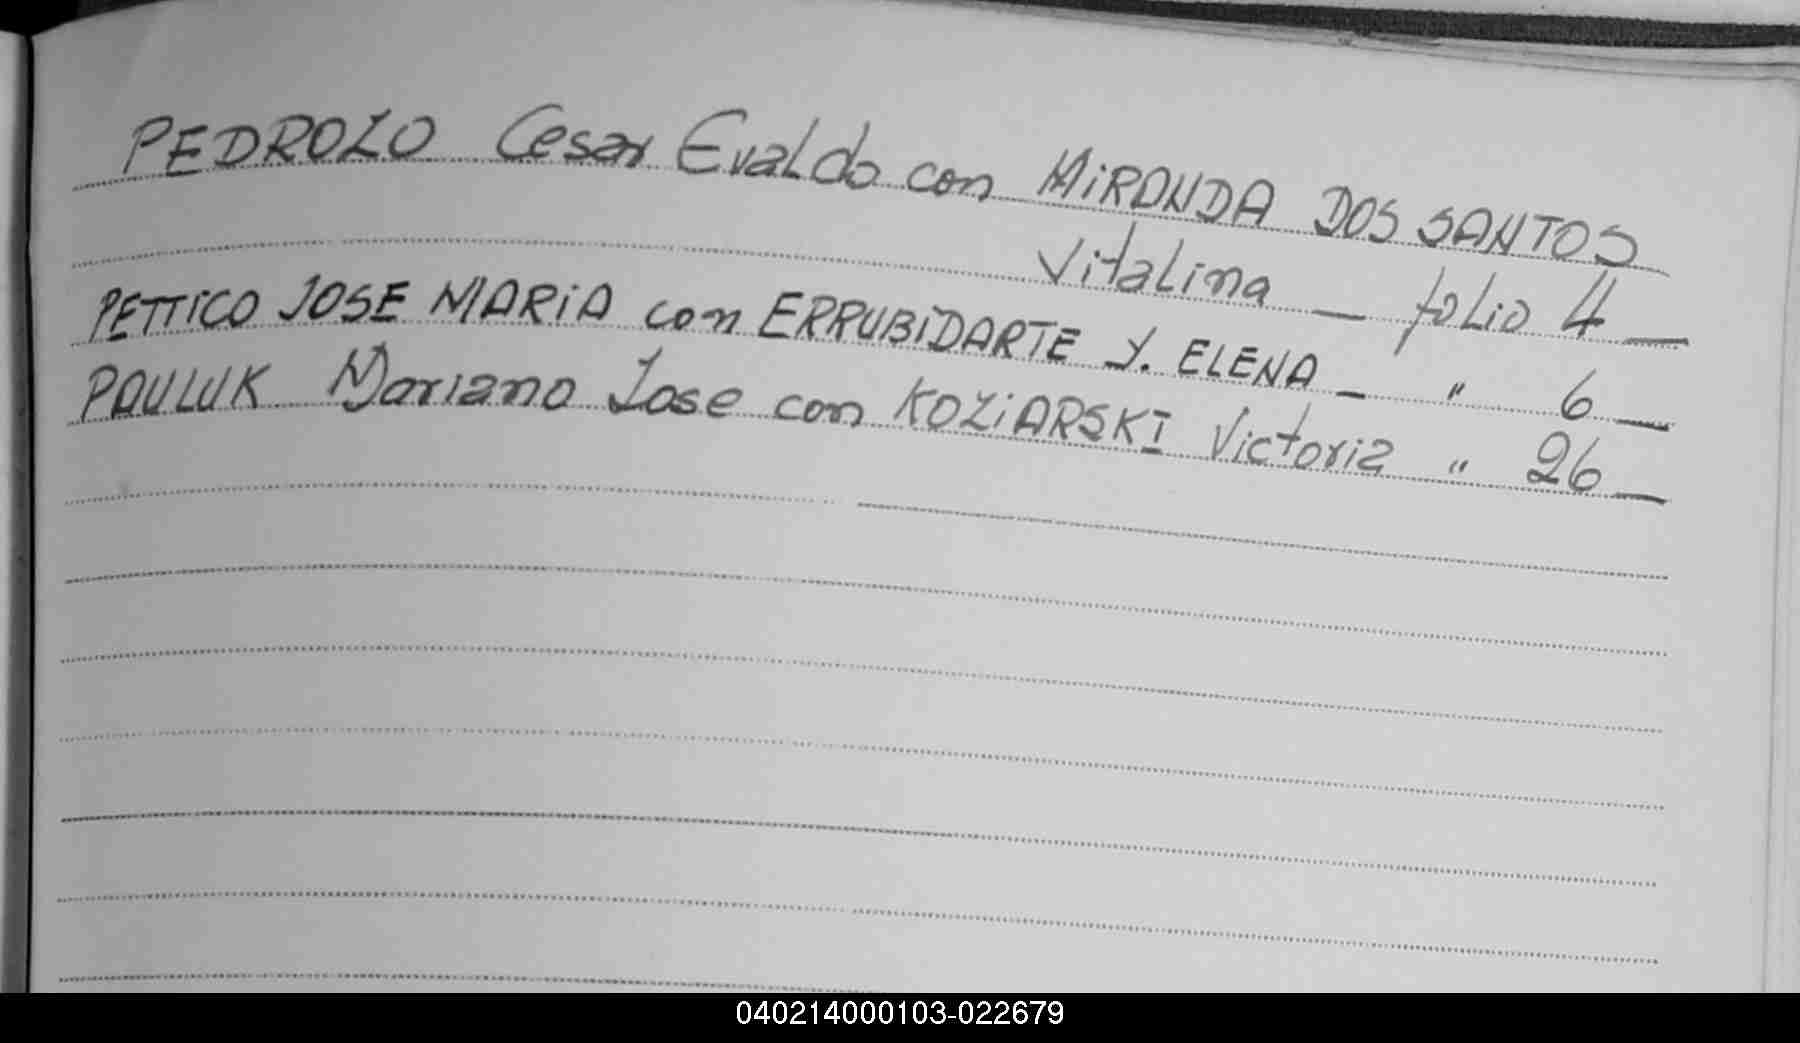 PEDROZO Cesar Evaldo con MiRANDA DOS SANTOS
Vitalina — folio 4 —
PETTiCO JOSE MARiA con ERRUBiDARTE Y. ELENA — " 6 —
PAULUK Mariano Jose con KOZiARSKI Victoria " 26 —
040214000103-022679